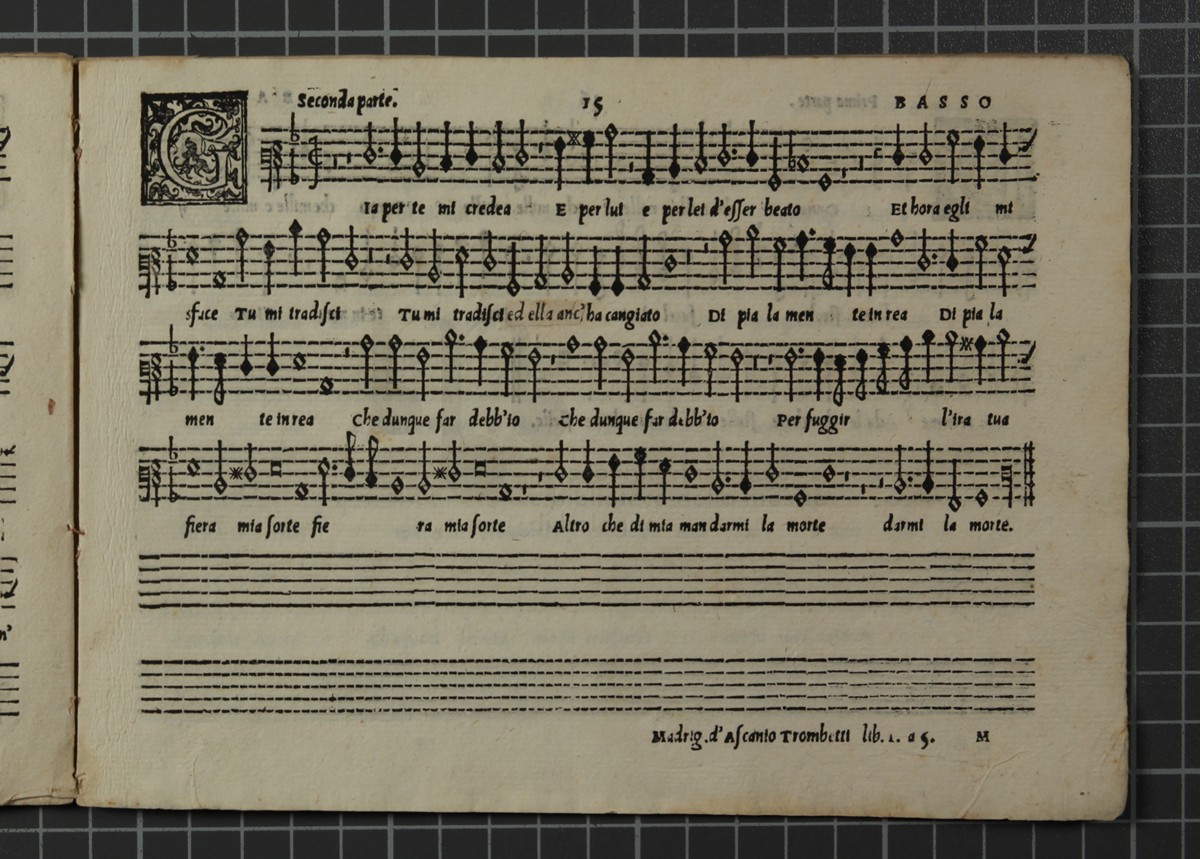 Seconda parte. 15 BASSO
G Ia per te mi credea E per lui e per lei d'esser beato Et hora egli mi
sface Tu mi tradisci Tu mi tradisci ed ella anc' ha cangiato Di pia la men te in rea Di pia la
men te in rea Che dunque far debb'io Che dunque far debb'io Per fuggir l'ira tua
fiera mia sorte fie ra mia sorte Altro che di mia man darmi la morte darmi la morte.
Madrig. d'Ascanio Trombetti lib. 1. a 5. M